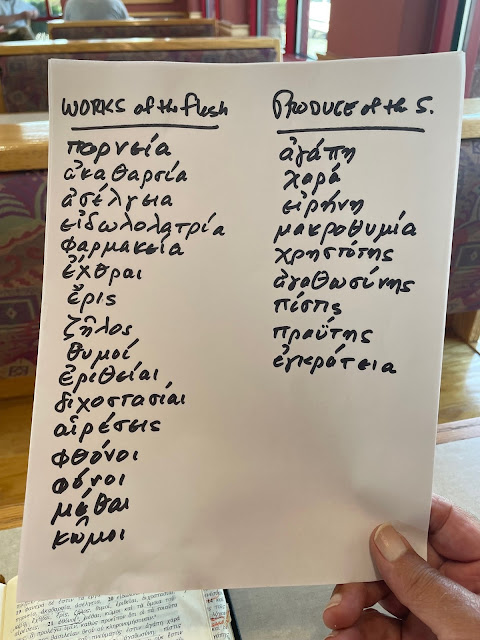 WORKS of the flesh
πορνεία
ἀκαθαρσία
ἀσέλγεια
εἰδωλολατρία
φαρμακεία
ἔχθραι
ἔρις
ζῆλος
θυμοί
ἐριθείαι
διχοστασίαι
αἱρέσεις
φθόνοι
φόνοι
μέθαι
κῶμοι
PRODUCE of the S.
ἀγάπη
χαρά
εἰρήνη
μακροθυμία
χρηστότης
ἀγαθωσύνης
πίστις
πραΰτης
ἐγκράτεια